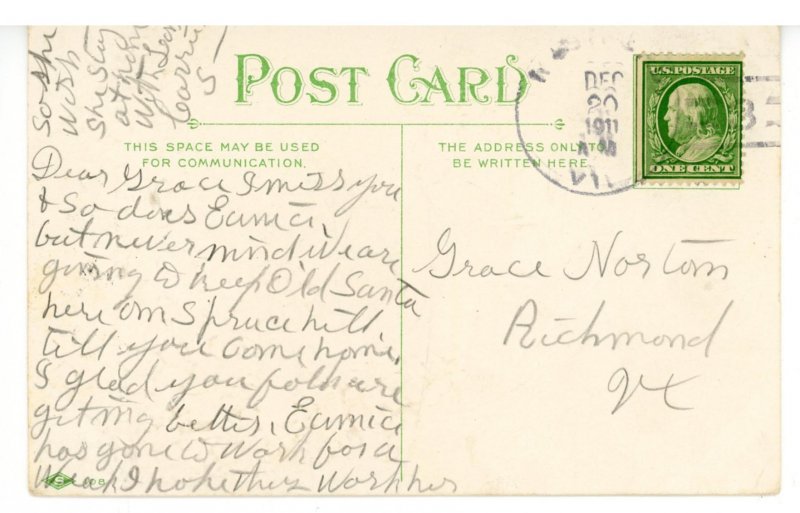 So she
wish
she stay
at home
with
Carrie
S
POST CARD
THIS SPACE MAY BE USED
FOR COMMUNICATION.
THE ADDRESS ONLY TO
BE WRITTEN HERE.
DEC
20
1911
VT
U.S. POSTAGE
ONE CENT
Dear Grace I miss you
& So does Eunice,
but never mind We are
going to keep Old Santa
here on Spruce hill
till you Come home,
I glad you folks are
geting better, Eunice
has gone to Work for a
Weak I hope they Work her
108
Grace Norton
Richmond
Vt